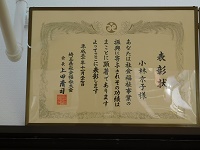 表彰状
小林宗子様
あなたは社会福祉事業の
振興に寄与されその功績は
まことに顕著であります
よってここに表彰します
平成
会長 上田清司